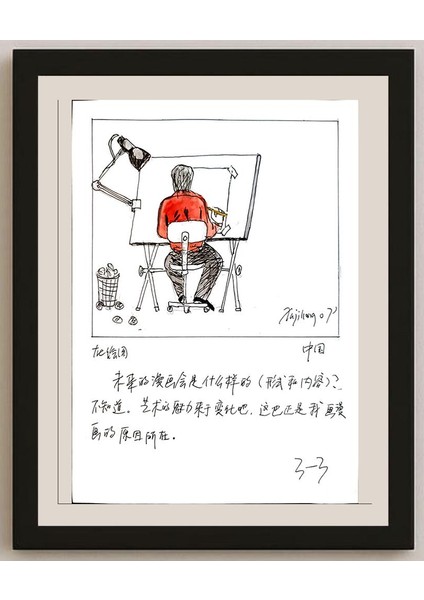 中国
未来的漫画会是什么样的（形式和内容）？
不知道。艺术的魅力来于变化吧，这也正是我画漫
画的原因所在。
3-3